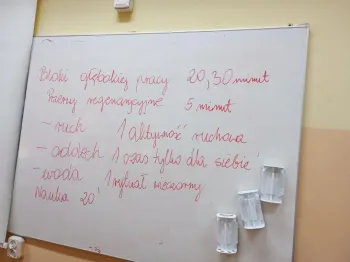 Bloki głębokiej pracy 20,30 minut
Przerwy regeneracyjne 5 minut
– ruch 1 aktywność ruchowa
– oddech 1 czas tylko dla siebie
– woda 1 rytuał wieczorny
Nauka 20'